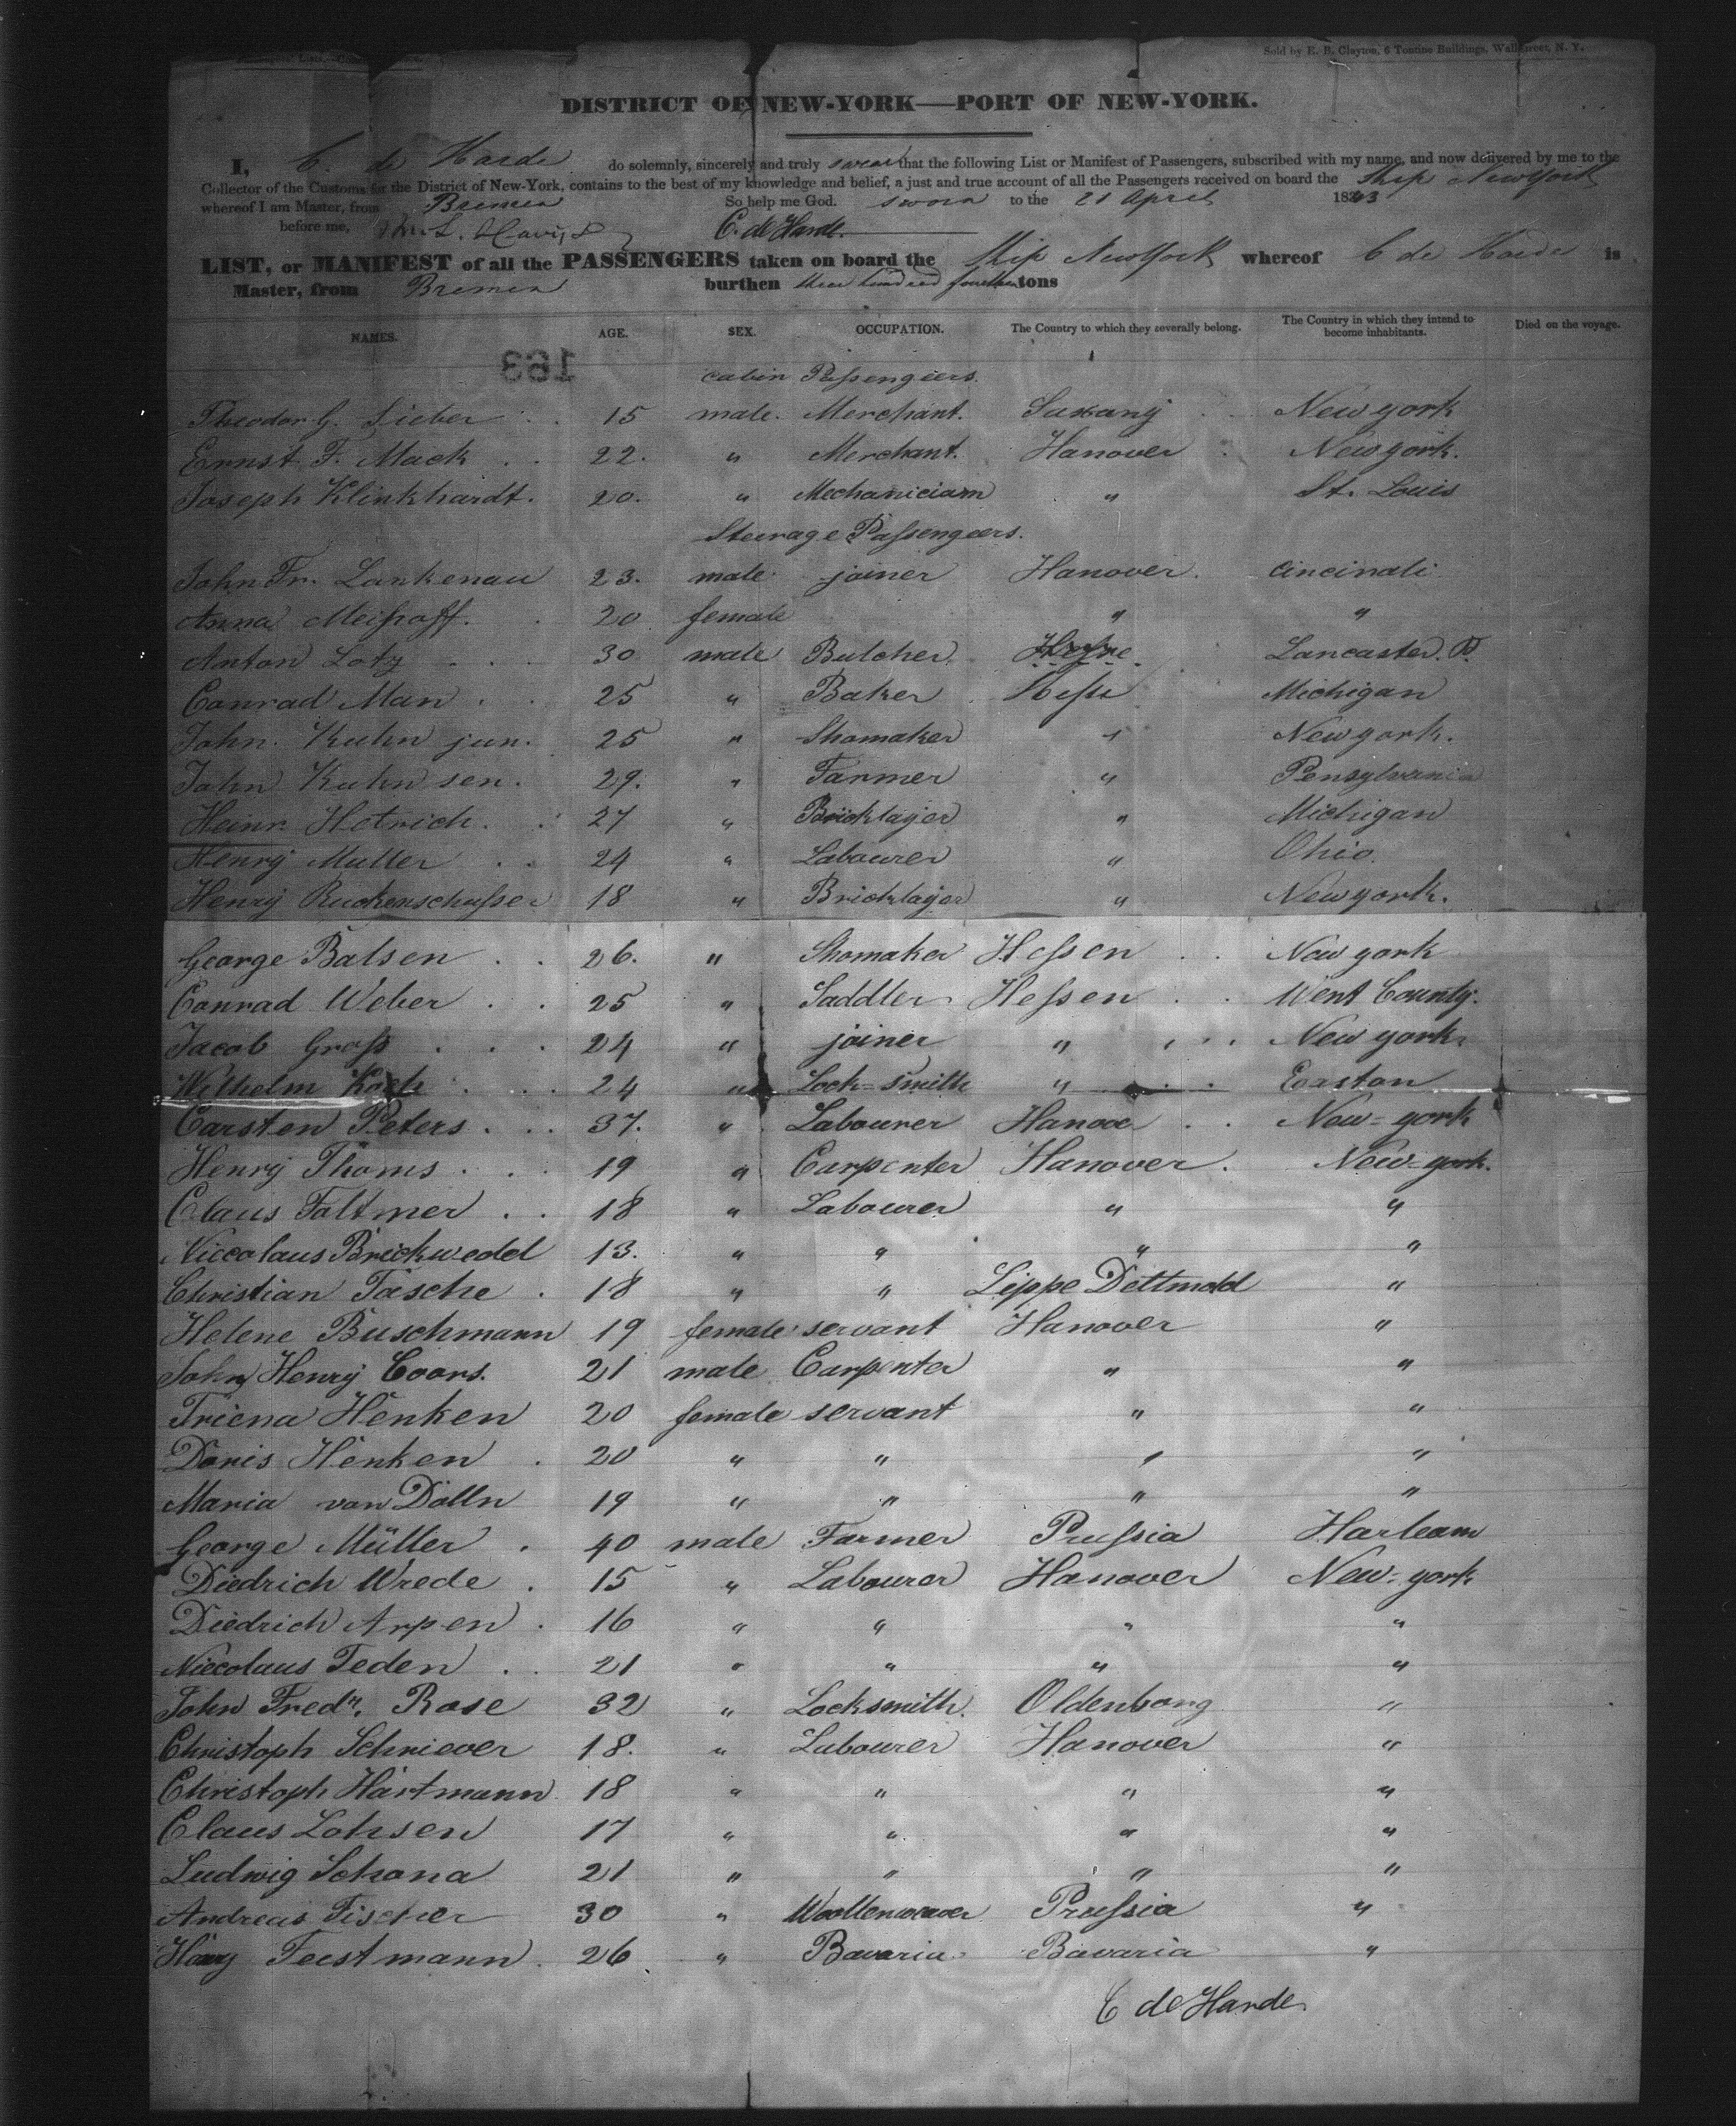 Sold by E. B. Clayton, 6 Tontine Buildings, Wall-street, N. Y.
DISTRICT OF NEW-YORK—PORT OF NEW-YORK.
I, C. de Harde do solemnly, sincerely and truly swear that the following List or Manifest of Passengers, subscribed with my name, and now delivered by me to the
Collector of the Customs for the District of New-York, contains to the best of my knowledge and belief, a just and true account of all the Passengers received on board the Ship Newyork
whereof I am Master, from Bremen So help me God. sworn to the 21 April 1843
before me, C. de Harde.
LIST, or MANIFEST of all the PASSENGERS taken on board the Ship Newyork whereof C de Harde is
Master, from Bremen burthen three hundred fourteen tons
NAMES. AGE. SEX. OCCUPATION. The Country to which they severally belong. The Country in which they intend to become inhabitants. Died on the voyage.
163
cabin Passengeers.
Theodor G. Sieber 15 male. Merchant. Saxany Newyork
Ernst F. Mack 22. " Merchant. Hanover Newyork.
Joseph Klinkhardt. 20. " Mechaniciam " St. Louis
Steurage Passengeers.
John Fr. Lankenau 23. male joiner Hanover. Cincinati
Anna Meishoff. 20 female " "
Anton Lotz 30 male Butcher. Lancaster. P.
Conrad Man 25 " Baker Hesse Michigan
John. Kuhn jun. 25 " Shomaker " Newyork.
John Kuhn sen. 29. " Farmer " Pensylvania
Heinr. Hetrich. 27 " Bricklayer " Michigan
Henry Muller 24 " Labourer " Ohio.
Henry Ruckenschusser 18 " Bricklayer " Newyork.
George Balsen 26. " Shomaker Hessen New york
Conrad Weber 25 " Saddler Hessen Went County.
Jacob Gross 24 " joiner " New york.
Wilhelm Koch 24 " Lock-smith " Easton
Carsten Peters 37. " Labourer Hanove New-york
Henry Thoms 19 " Carpenter Hanover. New-york.
Claus Faltmer 18 " Labourer " "
Niccolaus Brickwedel 13. " " " "
Christian Tasche 18 " " Lippe Dettmold "
Helene Buschmann 19 female servant Hanover "
John Henry Coors. 21 male Carpenter " "
Triena Henken 20 female servant " "
Doris Henken 20 " " " "
Maria van Dölln 19 " " " "
George Müller 40 male Farmer Prussia Harleam
Diedrich Wrede 15 " Labourer Hanover New-york
Diedrich Arpen 16 " " " "
Niecolaus Teden 21 " " " "
John Fredr. Rose 32 " Locksmith. Oldenborg "
Christoph Schriever 18. " Labourer Hanover "
Christoph Hartmann 18 " " " "
Claus Lohsen 17 " " " "
Ludwig Schona 21 " " " "
Andreas Fischer 30 " Woollenweaver Prussia "
Feestmann 26 " Bavaria Bavaria "
C de Harde